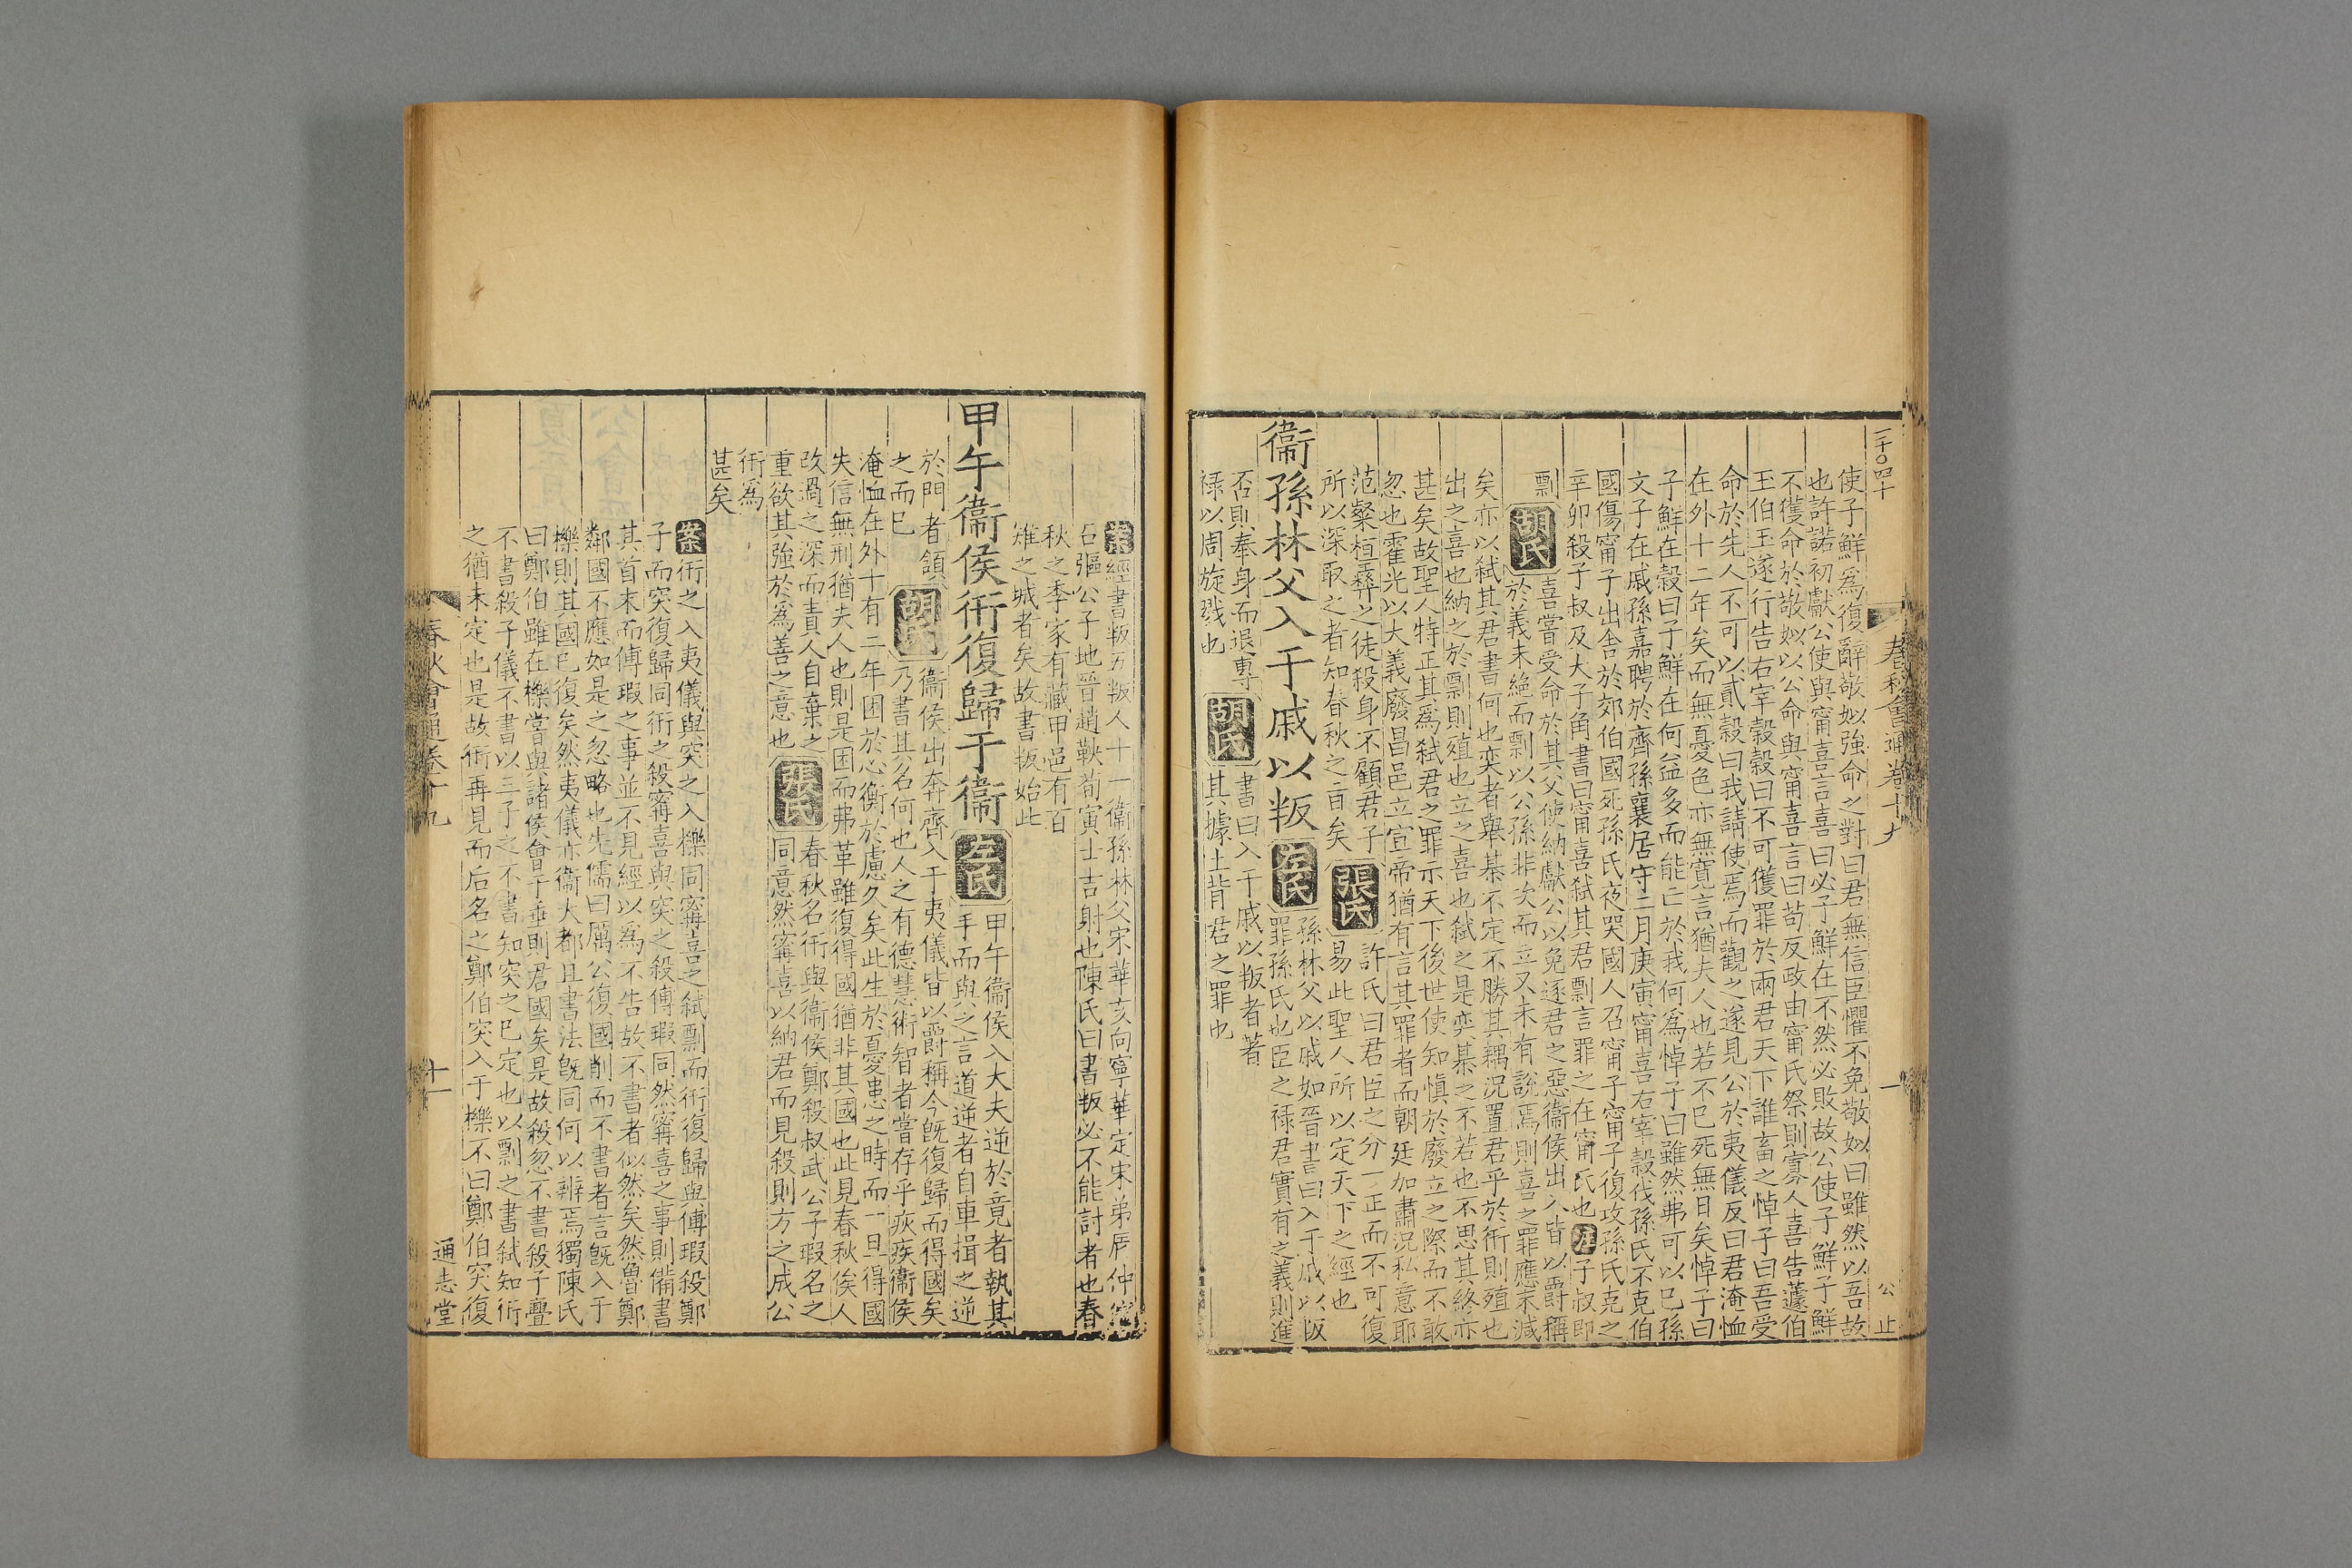 一千〇四十
春秋會通卷十九
一
公止
使子鮮爲復辭敬姒強命之對曰君無信臣懼不免敬姒曰雖然以吾故
也許諾初獻公使與甯喜言喜曰必子鮮在不然必敗故公使子鮮子鮮
不獲命於敬姒以公命與甯喜言曰苟反政由甯氏祭則寡人喜告蘧伯
玉伯玉遂行告右宰穀穀曰不可獲罪於兩君天下誰畜之悼子曰吾受
命於先人不可以貳穀曰我請使焉而觀之遂見公於夷儀反曰君淹恤
在外十二年矣而無憂色亦無寬言猶夫人也若不已死無日矣悼子曰
子鮮在穀曰子鮮在何益多而能亡於我何爲悼子曰雖然弗可以已孫
文子在戚孫嘉聘於齊孫襄居守二月庚寅甯喜右宰穀伐孫氏不克伯
國傷甯子出舍於郊伯國死孫氏夜哭國人召甯子甯子復攻孫氏克之
辛卯殺子叔及大子角書曰甯喜弒其君剽言罪之在甯氏也左子叔即
剽胡氏喜嘗受命於其父使納獻公以免逐君之惡衞侯出入皆以爵稱
於義未絕而剽以公孫非次而立又未有說焉則喜之罪應末減
矣亦以弒其君書何也奕者舉棊不定不勝其耦況置君乎於衎則殖也
出之喜也納之於剽則殖也立之喜也弒之是弈棊之不若也不思其終亦
甚矣故聖人特正其爲弒君之罪示天下後世使知愼於廢立之際而不敢
忽也霍光以大義廢昌邑立宣帝猶有言其罪者而朝廷加肅況私意耶
范粲桓彝之徒殺身不顧君子
所以深取之者知春秋之旨矣張氏許氏曰君臣之分一正而不可復
易此聖人所以定天下之經也
衞孫林父入于戚以叛左氏孫林父以戚如晉書曰入于戚以叛
罪孫氏也臣之祿君實有之義則進
否則奉身而退專
祿以周旋戮也胡氏書曰入于戚以叛者著
其據土背君之罪也
案經書叛五叛人十一衞孫林父宋華亥向寧華定宋弟辰仲
石彄公子地晉趙鞅荀寅士吉射也陳氏曰書叛必不能討者也春
秋之季家有藏甲邑有百
雉之城者矣故書叛始此
甲午衞侯衎復歸于衞左氏甲午衞侯入大夫逆於竟者執其
手而與之言道逆者自車揖之逆
於門者頷
之而已胡氏衞侯出奔齊入于夷儀皆以爵稱今旣復歸而得國矣
乃書其名何也人之有德慧術智者嘗存乎疢疾衞侯
淹恤在外十有二年困於心衡於慮久矣此生於憂患之時而一旦得國
失信無刑猶夫人也則是困而弗革雖復得國猶非其國也此見春秋俟人
改過之深而責人自棄之
重欲其強於爲善之意也張氏春秋名衎與衞侯鄭殺叔武公子瑕名之
同意然甯喜以納君而見殺則方之成公
衎爲
甚矣
案衎之入夷儀與突之入櫟同甯喜之弒剽而衎復歸與傅瑕殺鄭
子而突復歸同衎之殺甯喜與突之殺傅瑕同然甯喜之事則備書
其首末而傅瑕之事並不見經以爲不告故不書者似然矣然魯鄭
鄰國不應如是之忽略也先儒曰厲公復國削而不書者言旣入于
櫟則其國已復矣然夷儀亦衞大都且書法旣同何以辨焉獨陳氏
曰鄭伯雖在櫟嘗與諸侯會于垂則君國矣是故殺忽不書殺子亹
不書殺子儀不書以三子之不書知突之已定也以剽之書弒知衎
之猶未定也是故衎再見而后名之鄭伯突入于櫟不曰鄭伯突復
春秋會通卷十九
十一
通志堂